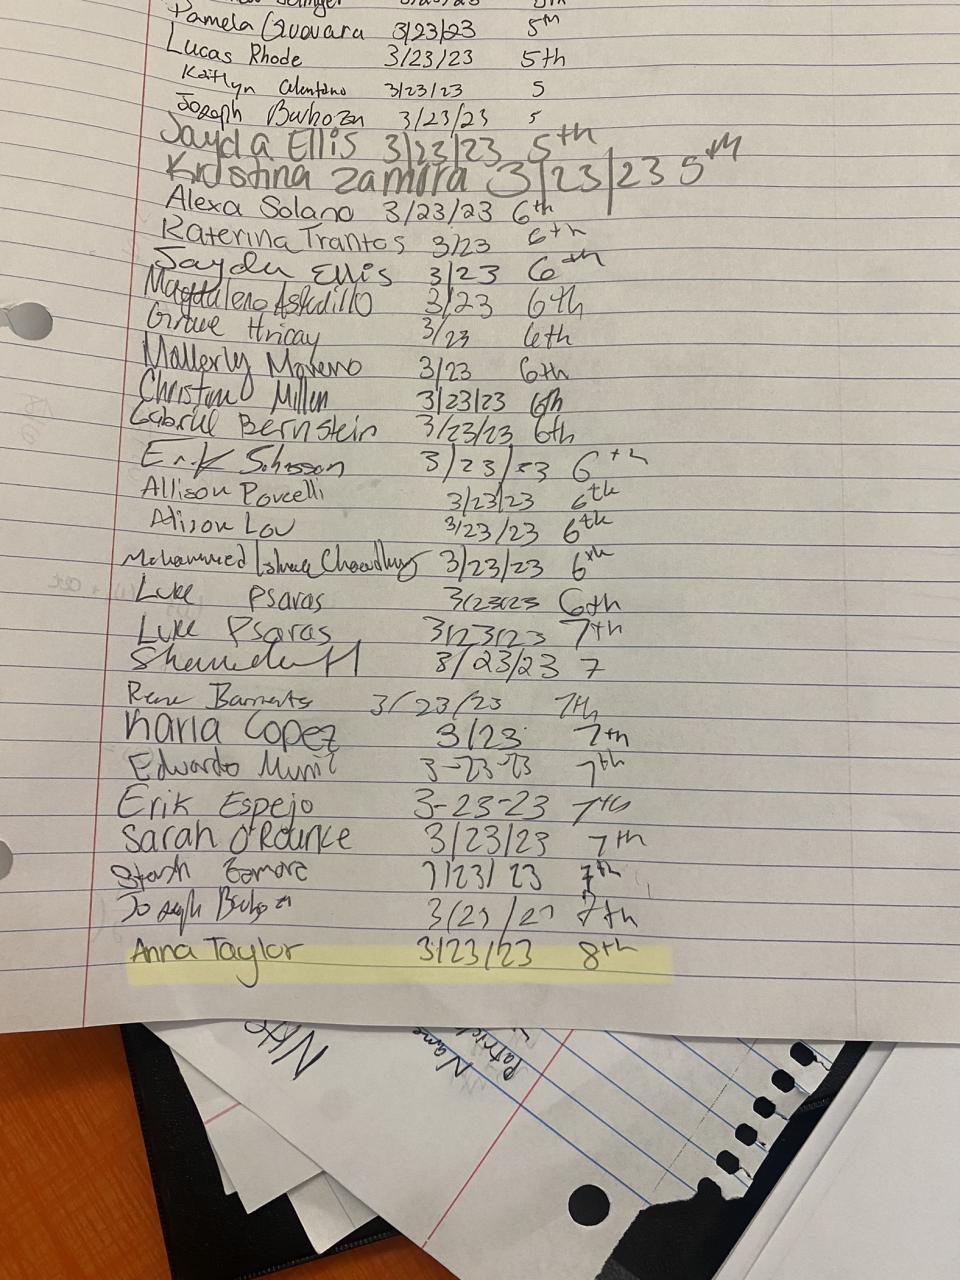 Pamela Guovara 3/23/23 5th
Lucas Rhode 3/23/23 5th
Kaitlyn Celentano 3/23/23 5
Joseph 3/23/23 5
Jayda Ellis 3/23/23 5th
Kristina Zamora 3/23/23 5th
Alexa Solano 3/23/23 6th
Katerina Trantos 3/23 6th
Jayda Ellis 3/23 6th
Magdaleno Astudillo 3/23 6th
Grace Hricay 3/23 6th
Mallerly Moreno 3/23 6th
Millen 3/23/23 6th
Gabriel Bernstein 3/23/23 6th
Erik 3/23/23 6th
Allison Porcelli 3/23/23 6th
Alison Lou 3/23/23 6th
Mohammed Chowdhury 3/23/23 6th
Luke Psaras 3/23/23 6th
Luke Psaras 3/23/23 7th
3/23/23 7
Rene 3/23/23 7th
Karla Lopez 3/23 7th
Edwardo 3-23-23 7th
Erik Espejo 3-23-23 7th
Sarah O'Rourke 3/23/23 7th
23/ 23 7th
Joseph 3/23/23 7th
Anna Taylor 3/23/23 8th
Name